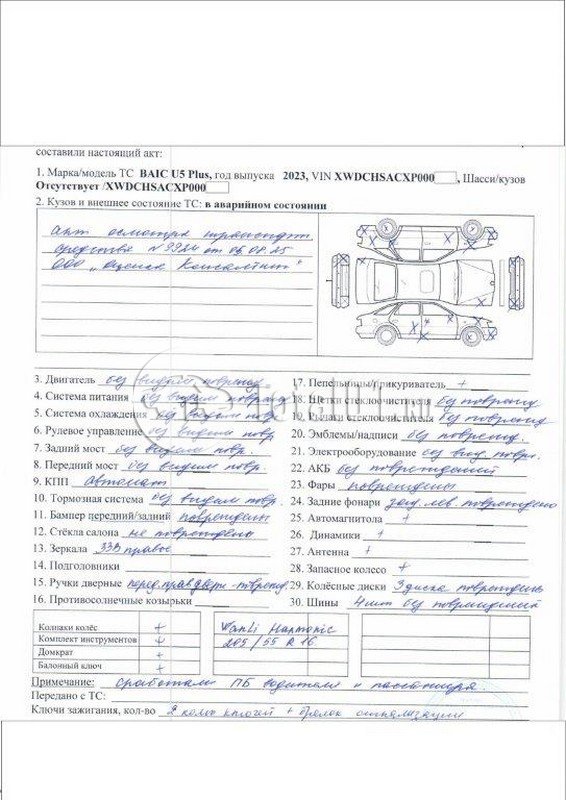 составили настоящий акт:
1. Марка/модель ТС BAIC U5 Plus, год выпуска 2023, VIN XWDCHSACXP000, Шасси/кузов
Отсутствует /XWDCHSACXP000
2. Кузов и внешнее состояние ТС: в аварийном состоянии
Акт осмотра транспорт
средства № 9924 от 06.08.25
ООО „Оценка Консалтинг"
3. Двигатель без видим поврежд
4. Система питания без видим поврежд
5. Система охлаждения без видим повр.
6. Рулевое управление без видим повр.
7. Задний мост без видим повр.
8. Передний мост без видим повр.
9. КПП Автомат
10. Тормозная система без видим повр.
11. Бампер передний/задний повреждены
12. Стёкла салона не повреждены
13. Зеркала ЗЗВ правое
14. Подголовники
15. Ручки дверные перед прав двери - поврежд.
16. Противосолнечные козырьки
17. Пепельницы/прикуриватель +
18. Щетки стеклоочистителя без поврежд
19. Рычаги стеклоочистителя без поврежд.
20. Эмблемы/надписи без поврежд.
21. Электрооборудование без вид повр.
22. АКБ без повреждений
23. Фары повреждены
24. Задние фонари зад. лев. повреждено
25. Автомагнитола +
26. Динамики +
27. Антенна +
28. Запасное колесо +
29. Колёсные диски 3 диска повреждены
30. Шины 4 шт без повреждений
Колпаки колёс +
Комплект инструментов +
Домкрат +
Балонный ключ +
Wanli
205/55 R 16
Примечание: сработали ПБ водителя и пассажира.
Передано с ТС:
Ключи зажигания, кол-во 2 ключей + брелок сигнализации